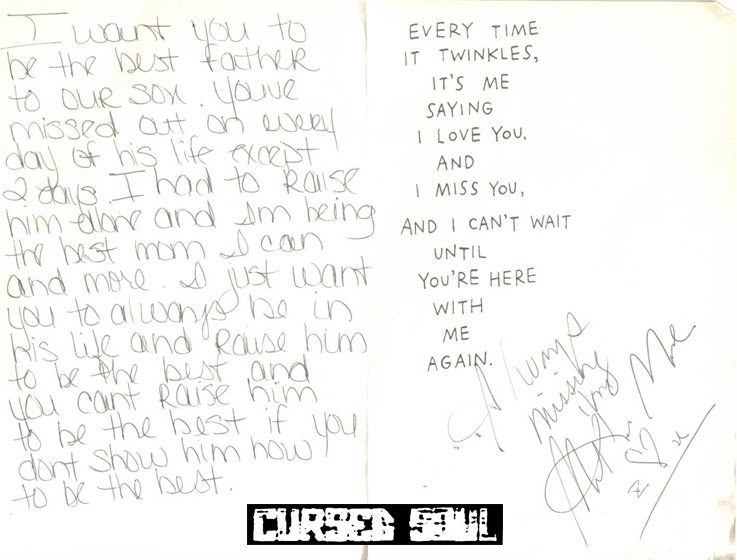 I want you to
be the best father
to our son. Youve
missed out on every
day of his life except
2 days. I had to Raise
him alone and Im being
the best mom I can
and more. I just want
you to always be in
his life and Raise him
to be the best and
you cant Raise him
to be the best if you
dont show him how
to be the best.
EVERY TIME
IT TWINKLES,
IT'S ME
SAYING
I LOVE YOU,
AND
I MISS YOU,
AND I CAN'T WAIT
UNTIL
YOU'RE HERE
WITH
ME
AGAIN.
Always
missing
CURSED SOUL